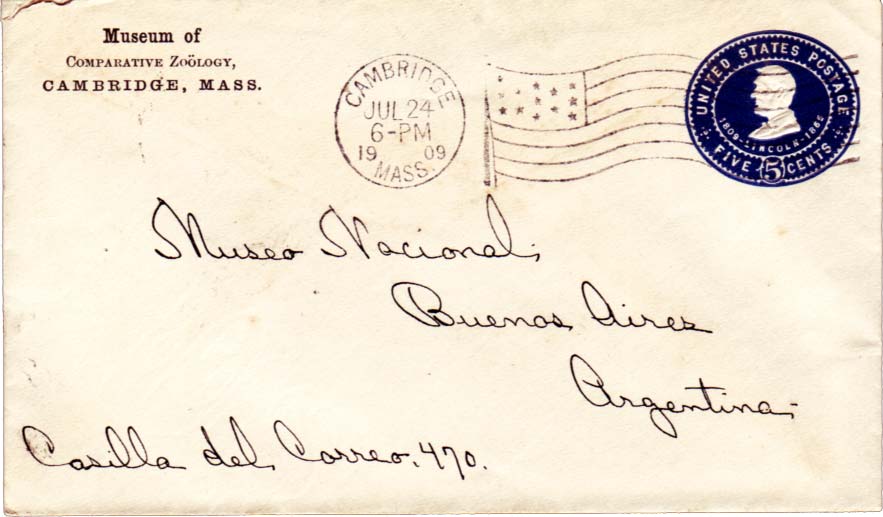 Museum of
COMPARATIVE ZOÖLOGY,
CAMBRIDGE, MASS.
CAMBRIDGE
JUL 24
6-PM
19 09
MASS.
UNITED STATES POSTAGE
1809-LINCOLN-1865
FIVE 5 CENTS
Museo Nacional,
Buenos Aires
Argentina,
Casilla del Correo. 470.